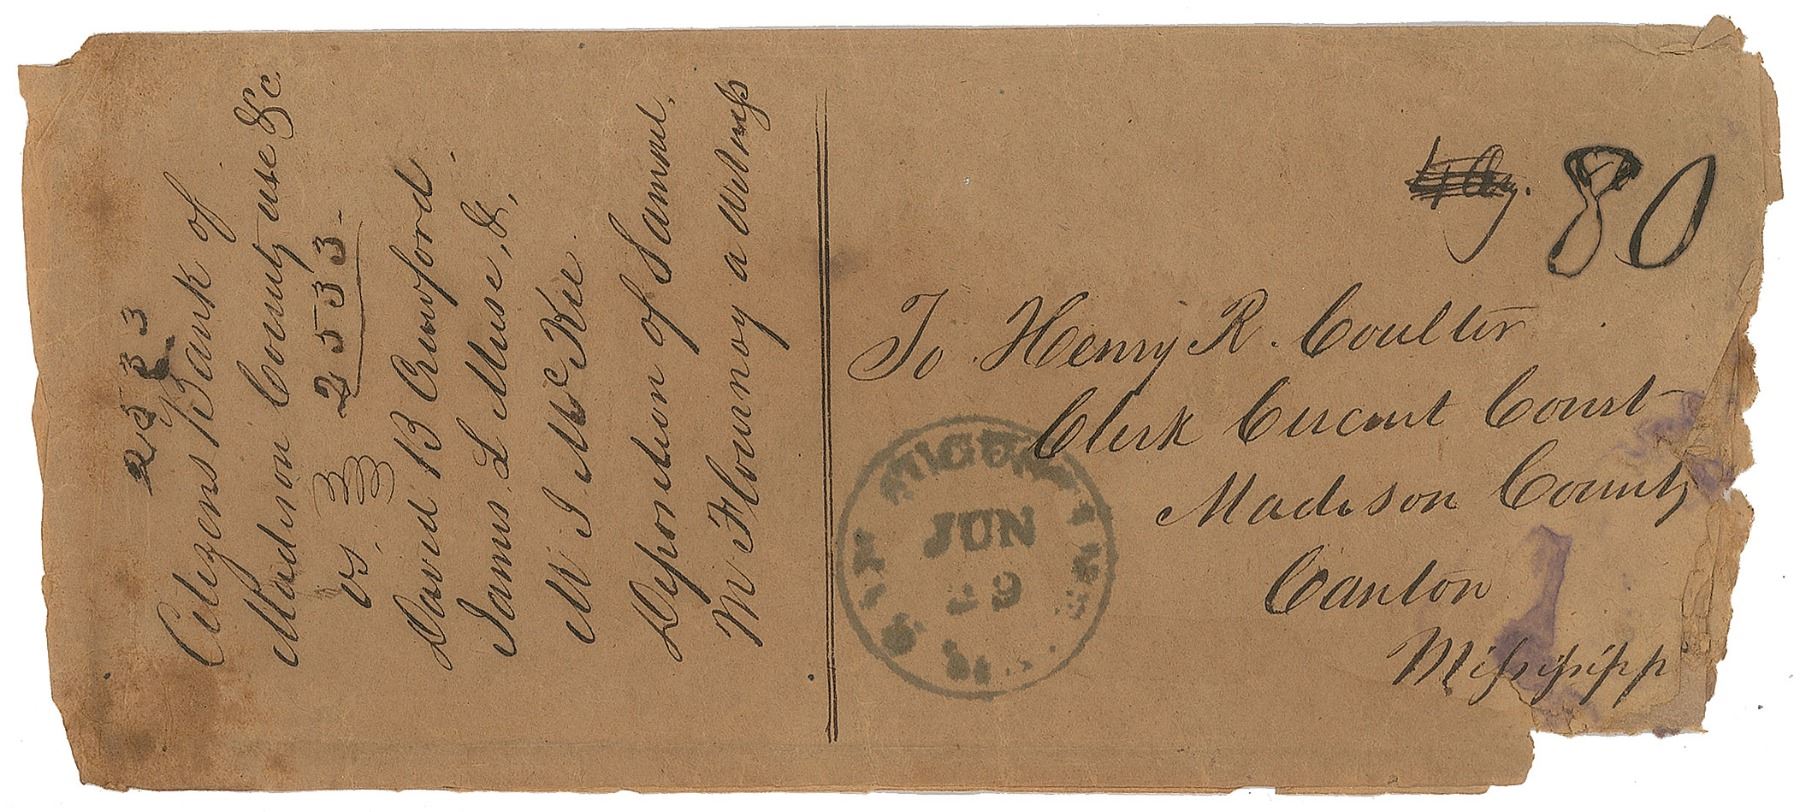 2533
Citizens Bank of
Madison County use &c
vs. 2533
David B Crawford
James L Muse, &,
M J McKee
Deposition of Samuel
M Flournoy a Witness
80
To Henry R. Coulter
Clerk Circuit Court
Madison County
Canton
Mississippi
JUN
29